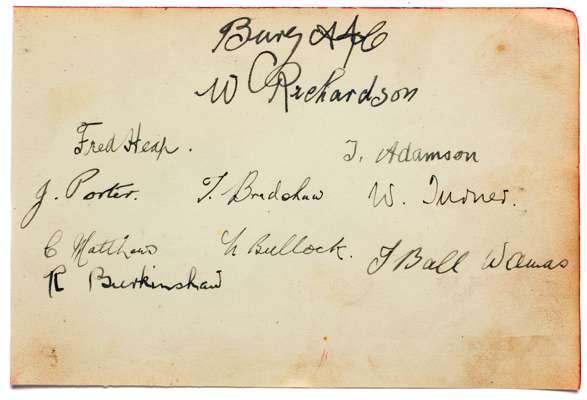 Bury AFC
W Richardson
Fred Heap.
T. Adamson
J. Porter. T. Bradshaw W. Turner.
C Matthews N Bullock. T Ball W Amos
R Burkinshaw